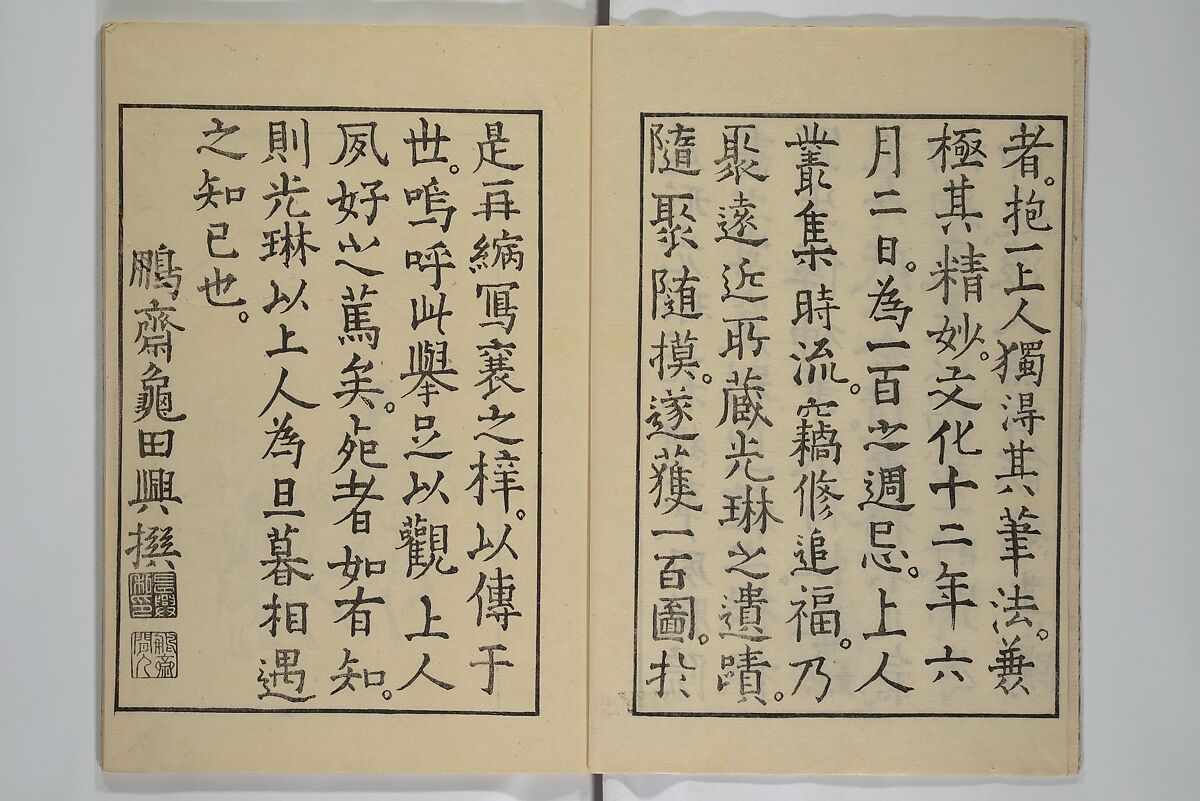 者。抱一上人獨得其筆法。兼
極其精妙。文化十二年六
月二日。為一百之週忌。上人
叢集時流。竊修追福。乃
聚遠近所藏光琳之遺蹟。
隨聚隨摸。遂獲一百圖。於
是再縮寫裒之梓。以傳于
世。嗚呼此舉足以觀上人
夙好之篤矣。死者如有知。
則光琳以上人為旦暮相遇
之知己也。
鵬齋龜田興撰